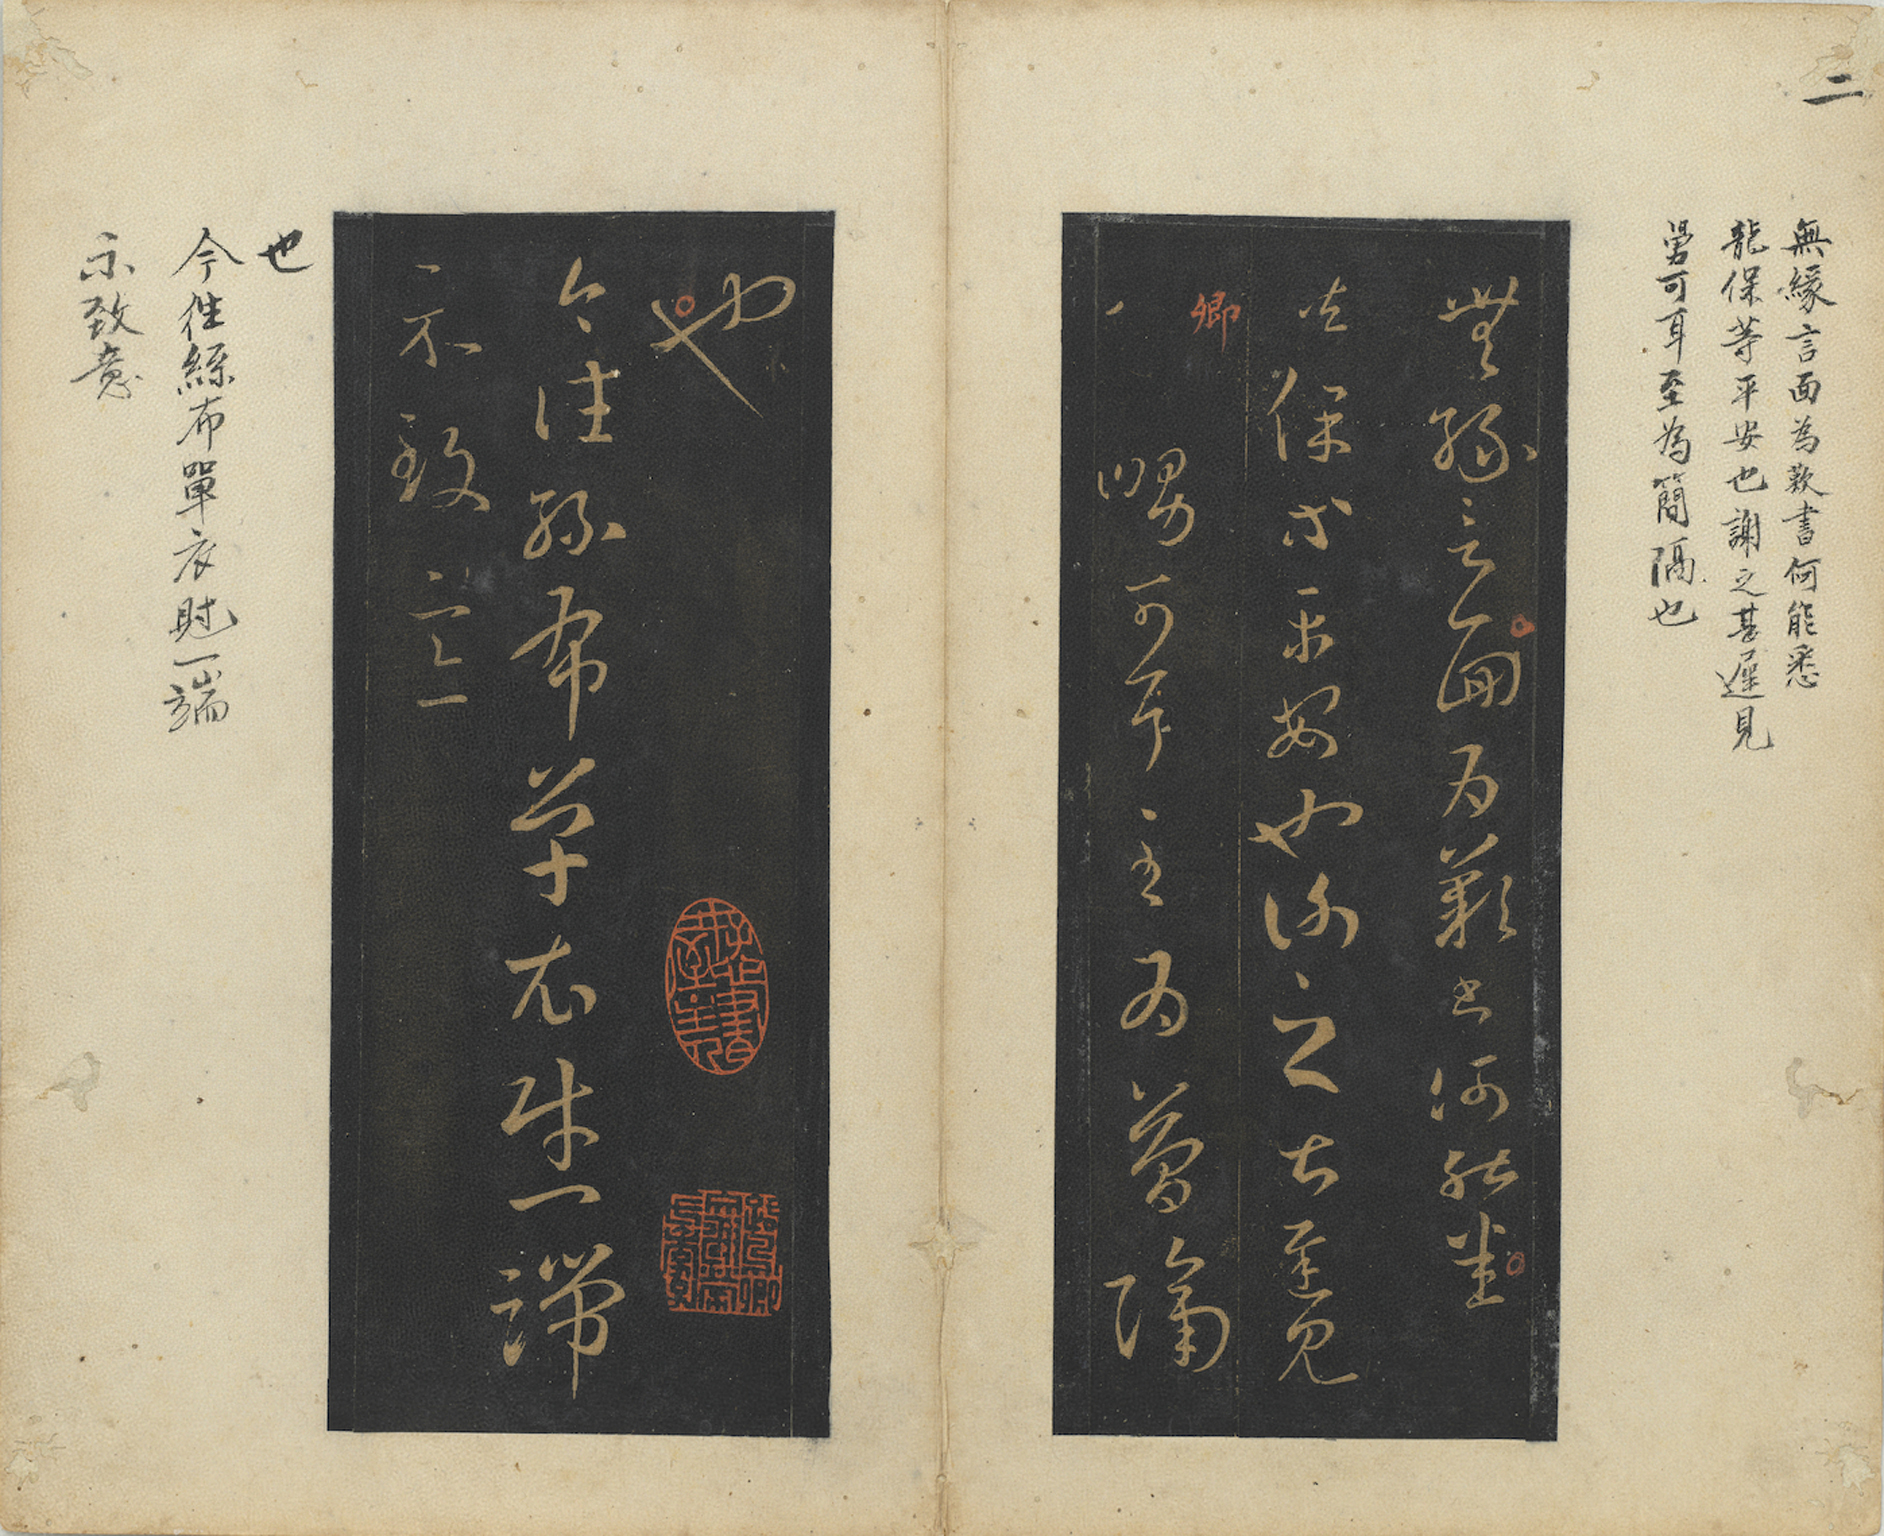 二
無緣言面為歎書何能悉
龍保等平安也謝之甚遲見
舅可耳至為簡隔也
無緣言面為歎書何能悉
龍保等平安也謝之甚遲見
卿
舅可耳至為簡隔
也
今往絲布單衣財一端
示致意
也
今往絲布單衣財一端
示致意